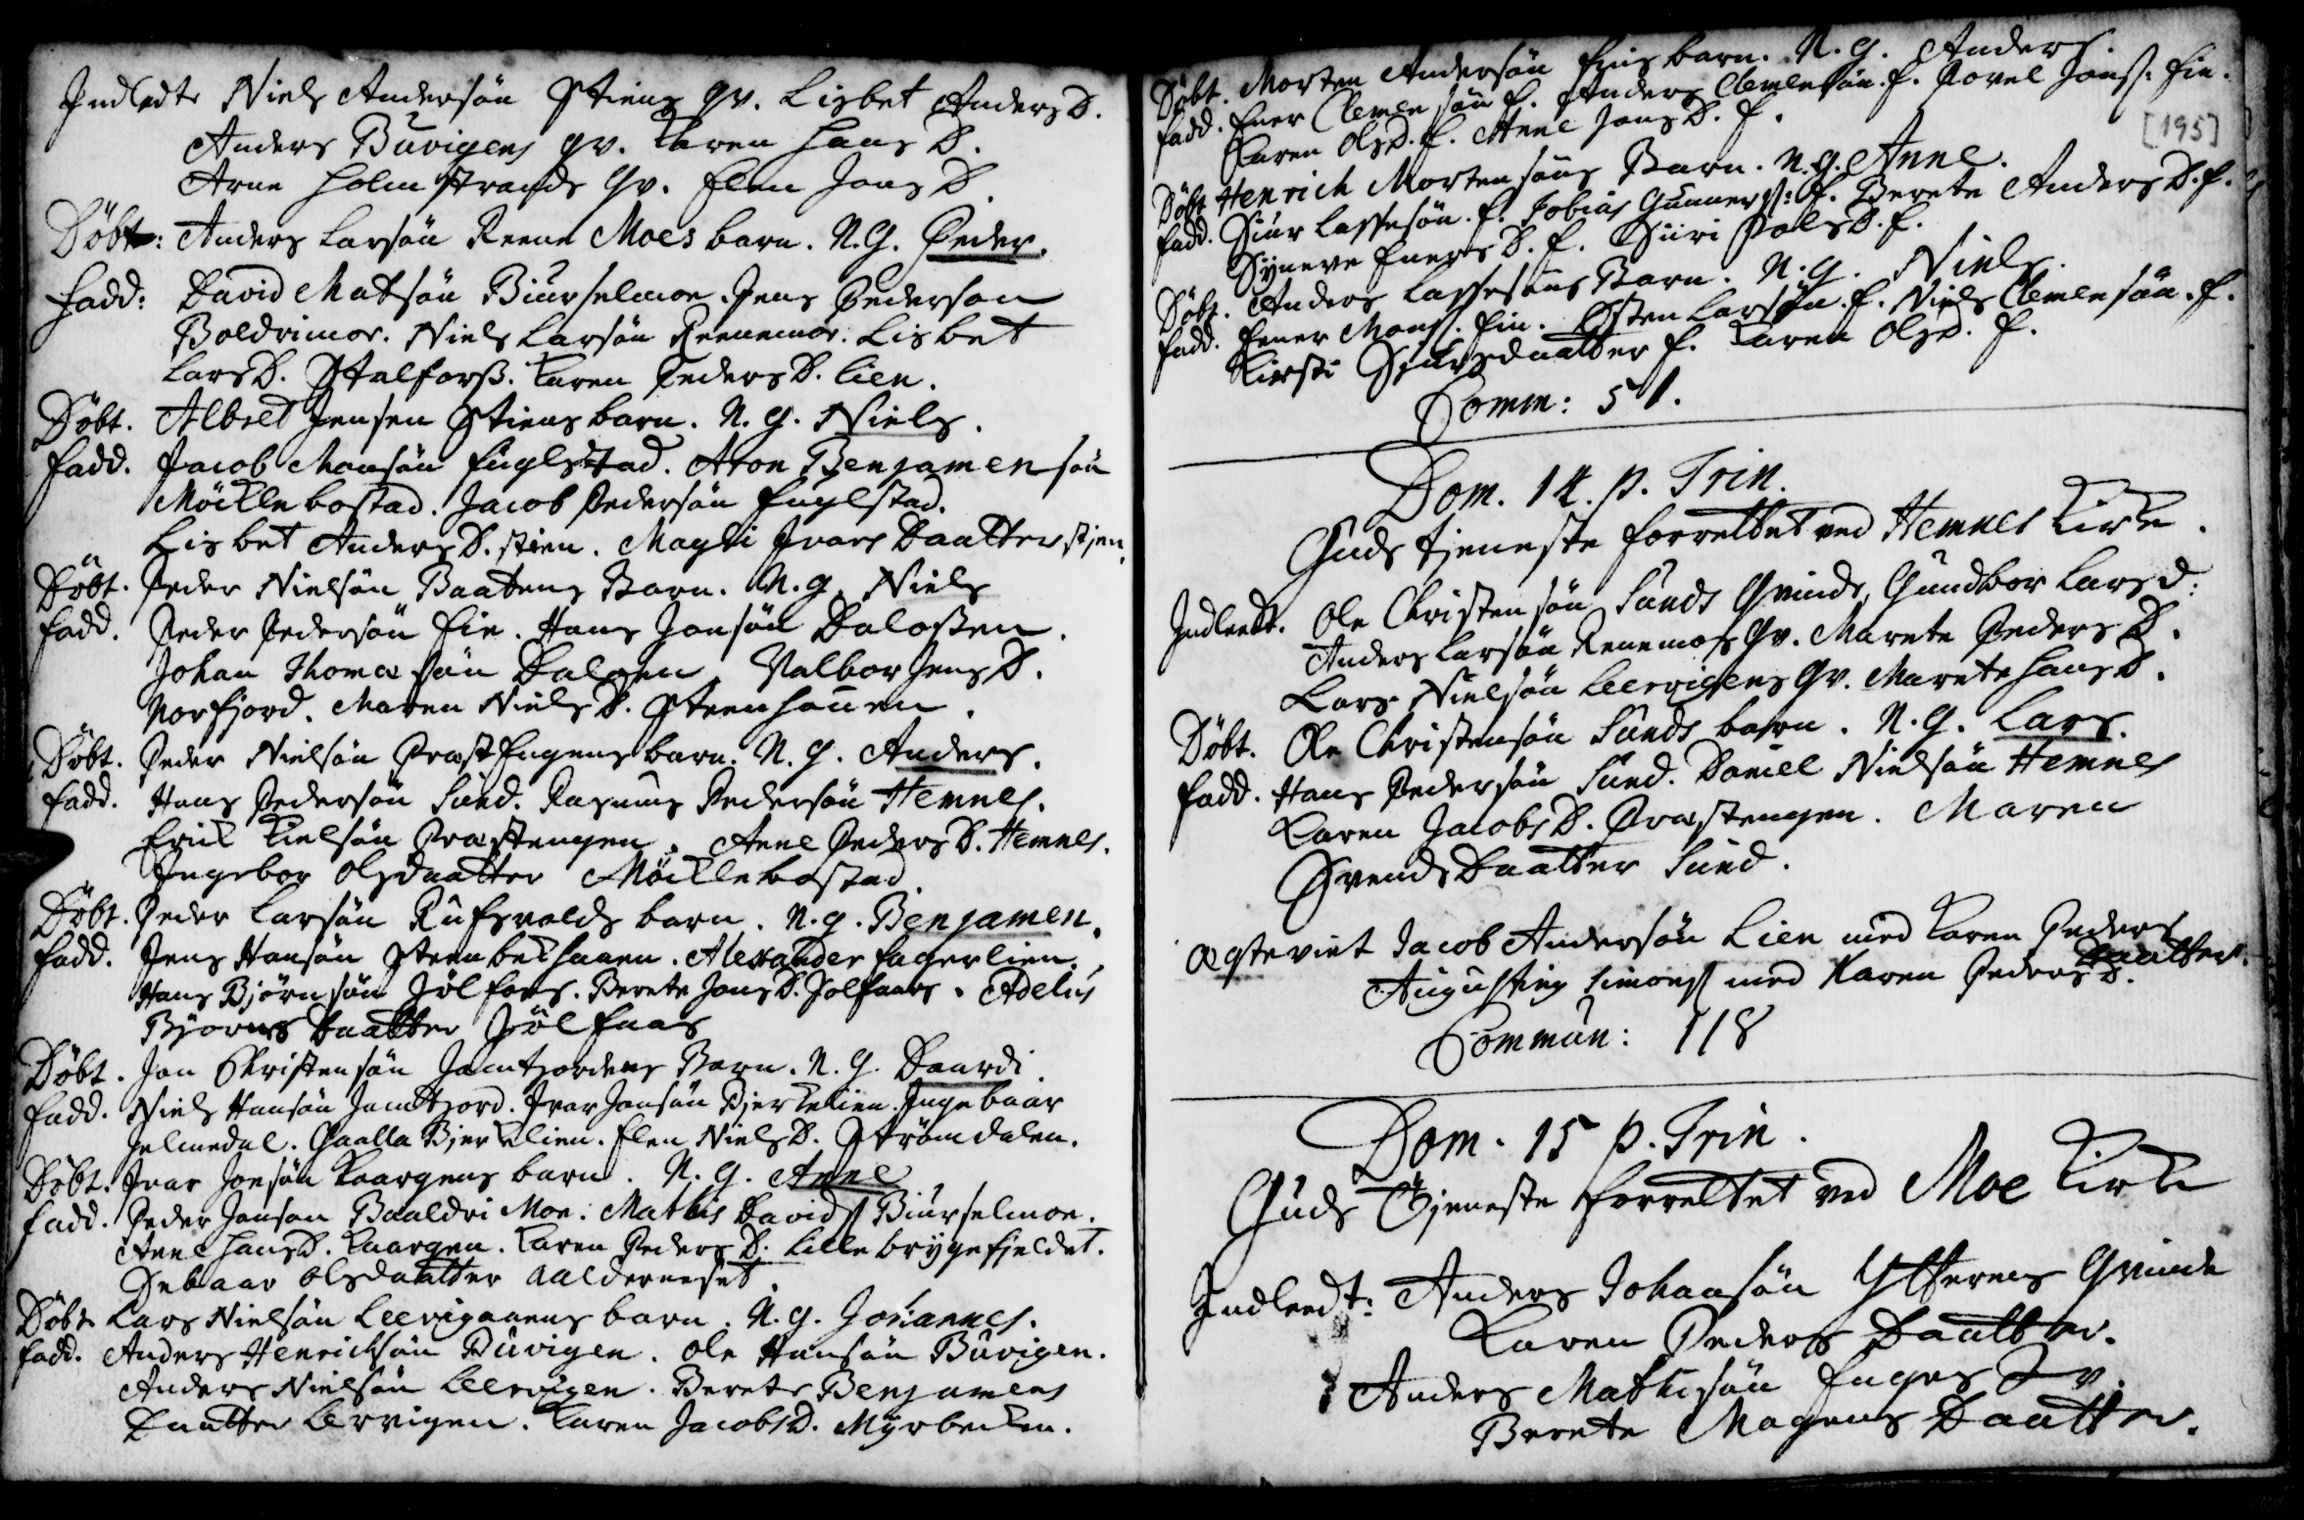 Indledte Niels Andersøn Stiens qv. Lisbet Anders D.
Anders Buvigens qv. Karen Hans D.
Arne Holmstrands Qv. Elen Jons D.
Döbt: Anders Larsøn Reene Moes barn. N.G. Peder.
Fadd: David Matsøn Biurselmoe. Jens Pederson
Boldrimoe. Niels Larsøn Reenemoe. Lisbet
Lars D. Stalforß. Karen Peders D. Lien.
Döbt. Albret Jensen Stiens barn. N.G. Niels.
Fadd. Jacob Monsøn Fuglstad. Aron Benjamensøn
Möcklebostad. Jacob Pedersøn Fuglstad.
Lisbet Anders D. stien. Magli Ivars Daatter stien.
Döbt. Peder Nielsøn Baatens Barn. N.G. Niels
Fadd. Peder Pedersøn Fin. Hans Jonsøn Dalosen.
Johan Thomæsøn Dalosen Valbor Jens D.
Norfjord. Maren Niels D. Steenhauen.
Döbt. Peder Nielsøn Præstengens barn. N.G. Anders.
Fadd. Hans Pedersøn Sund. Rasmus Pedersøn Hemnes.
Erick Kielsøn Præstengen. Anne Peders D. Hemnes.
Ingebor Olsdaatter Möcklebostad.
Döbt. Peder Larsøn Rufsvolds barn. N.G. Benjamen.
Fadd. Jens Hansøn Steenbekhauen. Alexander Fagerlien.
Hans Björnsøn Jölfors. Berete Jons D. Jolfaars. Adelus
Bjorns Daatter Jölfaas
Döbt. Jon Christensøn Jamtjordens Barn. N.G. Daardi
Fadd. Niels Hansøn Jamtjord. Ivar Jonsøn Bjerkelien. Ingebaar
Jelmedal. Gaalla Bjerkelien. Elen Niels D. Strömdalen.
Döbt. Ivar Jonsøn Kaargens barn. N.G. Anne
Fadd. Peder Jonson Baaldri Moe. Mathis Davids Biurselmoe.
Anne Hans D. Kaargen. Karen Peders D. Lillebrygefjeldet.
Sebaar Olsdaatter Aalderneset.
Döbt Lars Nielsøn Leervigaaens barn. N.G. Johannes.
Fadd. Anders Henricksøn Buvigen. Ole Hansøn Buvigen.
Anders Nielsøn Leervigen. Berete Benjamens
Daatter Lervigen. Karen Jacobs D. Myrbecken.
Döbt. Morten Andersøn Fins barn. N.G. Anders.
Fadd. Ener Clemensøn F. Anders Clemensøn. F. Povel Jonss. Fin.
Karen Ols D. F. Anne Jons D. F.
[195]
Döbt Henrich Mortensøns Barn. N.G. Anne.
Fadd. Siur Lassesøn. F. Tobias Gunnerss: F. Berete Anders D. F.
Synneve Eners D. F. Siiri Pols D. F.
Döbt. Anders Lassesøns Barn. N.G. Niels
Fadd. Ener Monss. Fin. Osten Larsøn. F. Niels Clemensøn. F.
Kirsti Siursdaatter F. Karen Olsd. F.
Comm: 51.
Dom. 14. p. Trin.
Guds tjeneste forrettet ved Hemnes Kirke.
Indleedt. Ole Christensøn Sunds Qvinde, Gundbor Larsd:
Anders Larsøn Renemoes Qv. Marete Peders D.
Lars Nielsøn Leervigens Qv. Marete Hans D.
Döbt. Ole Christensøn Sunds barn. N.G. Lars.
Fadd. Hans Pedersøn Sund. Daniel Nielsøn Hemnes
Karen Jacobs D. Præstengen. Maren
Svends Daatter Sund.
Ægteviet Jacob Andersøn Lien med Karen Peders
Daatter.
Augustinus Simonss med Karen Peders D.
Commun: 118
Dom. 15 p. Trin.
Guds Tjeneste forrettet ved Moe Kirke
Indleedt: Anders Johansøn Ytterens Qvinde
Karen Peders Daatter.
Anders Mathisøn Enges Qv.
Berete Mogens Daatter.